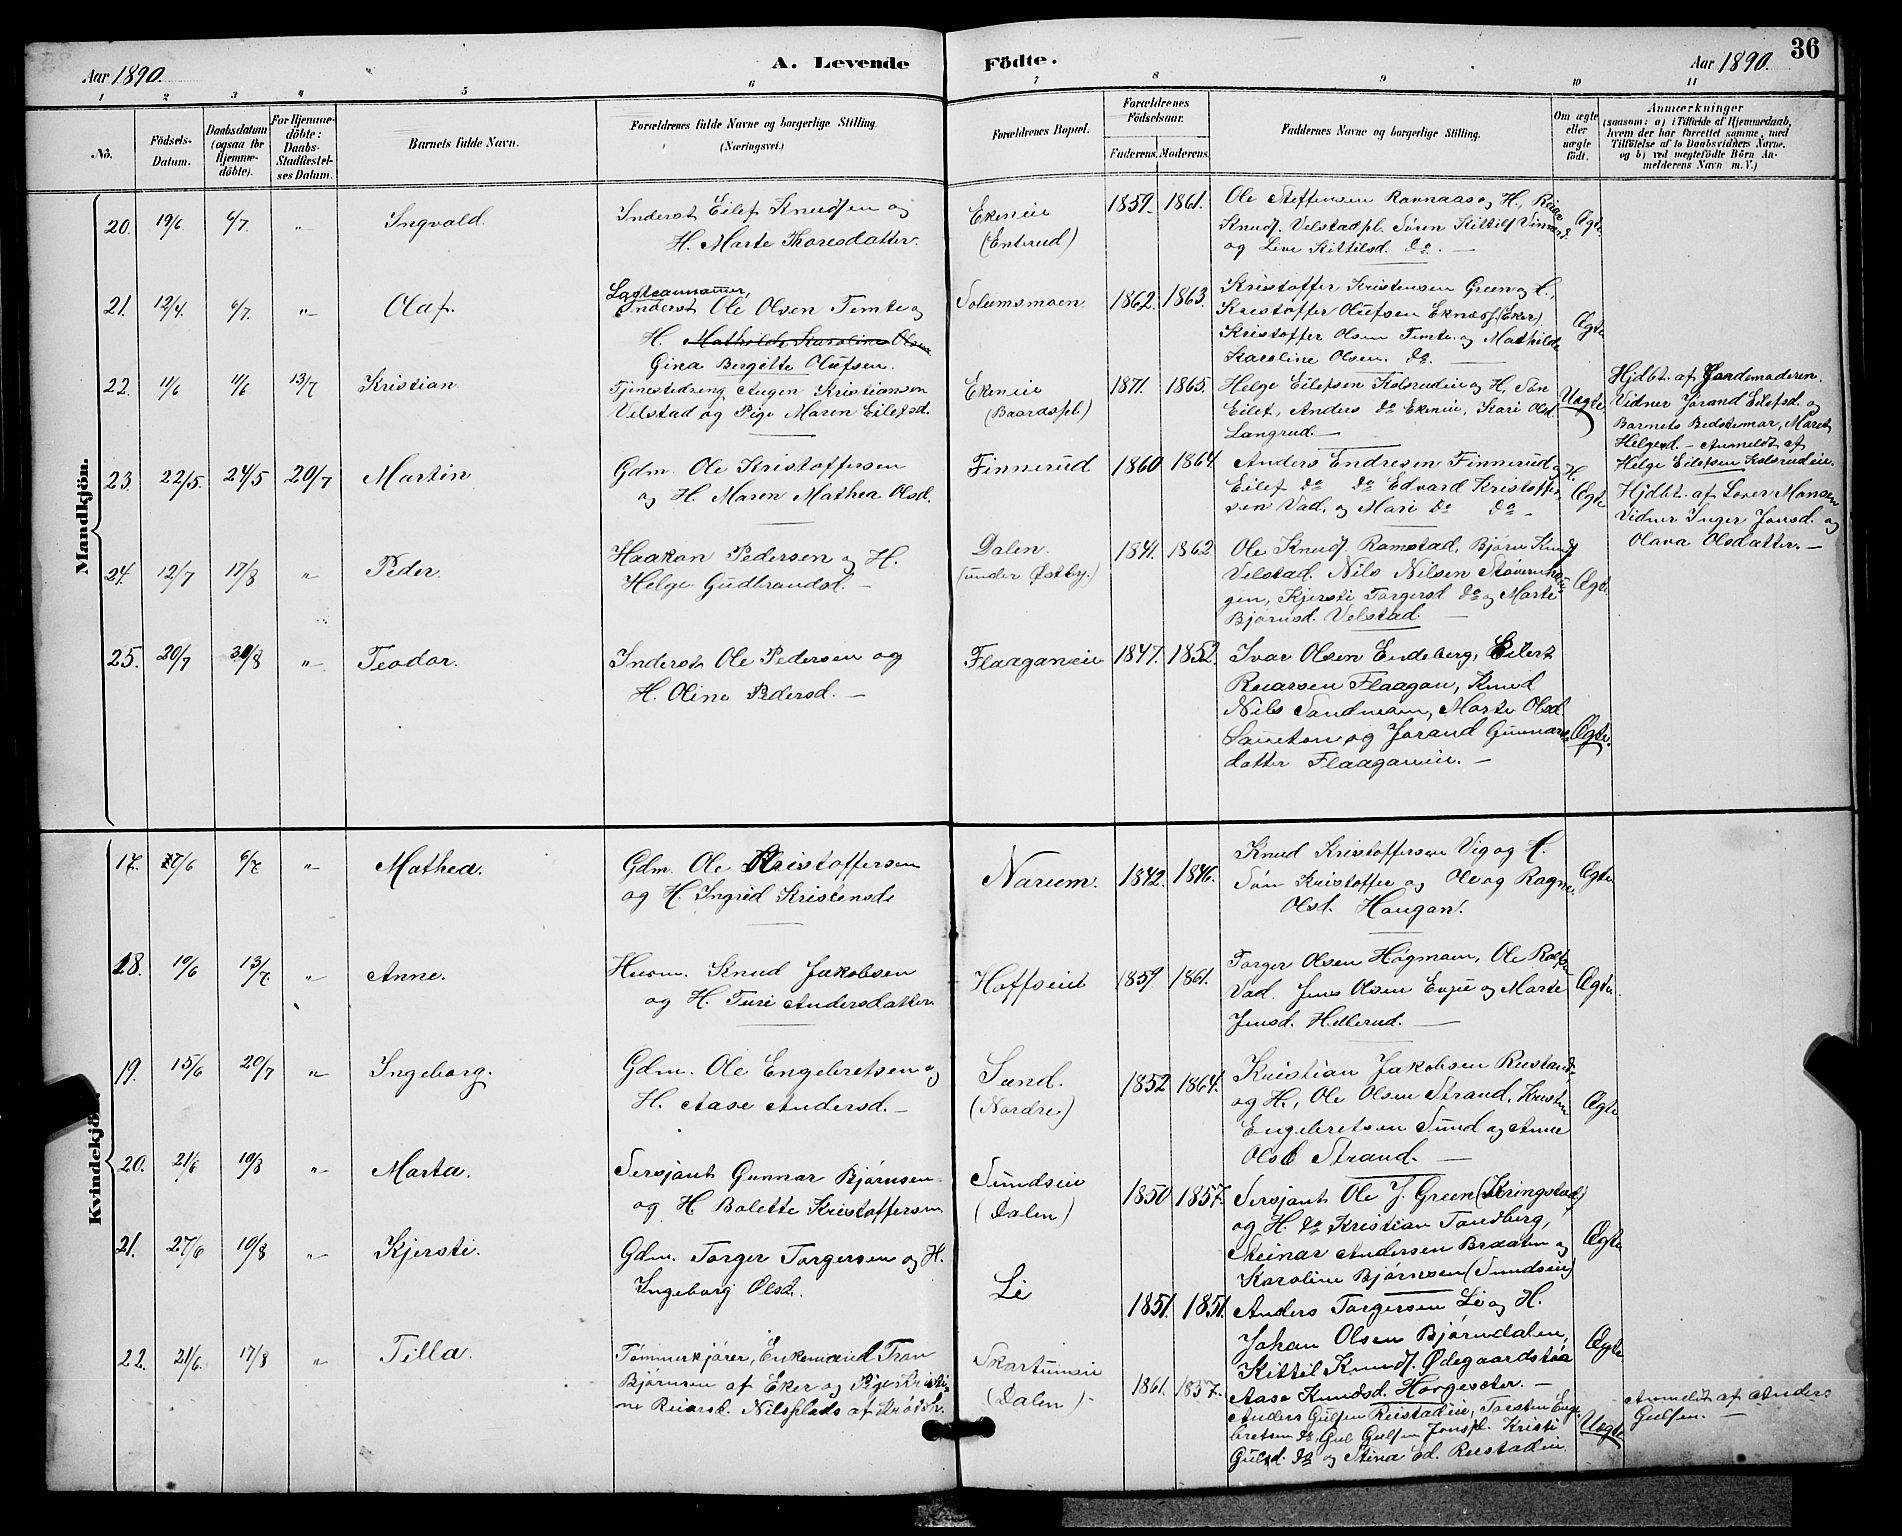 36
Aar 1890.
A. Levende Födte.
Aar 1890.
1 2 3 4 5 6 7 8 9 10 11
No.
Födsels-
Datum.
Daabsdatum
(ogsaa for
Hjemme-
döbte).
For Hjemme-
döbte:
Daabs-
Stadfæstel-
ses Datum.
Barnets fulde Navn.
Forældrenes fulde Navne og borgerlige Stilling.
(Næringsvei.)
Forældrenes Bopæl.
Forældrenes
Födselsaar.
Faderens. Moderens.
Faddernes Navne og borgerlige Stilling.
Om ægte
eller
uægte
födt.
Anmærkninger
(saasom: a) i Tilfælde af Hjemmedaab,
hvem der har forrettet samme, med
Tilföielse af to Daabsvidners Navne,
og b) ved uægtefödte Börn An-
melderens Navn m. V.)
Mandkjön.
20. 19/6 6/7 " Ingvald.
Inderst Eilef Knudsen og
H. Marte Thoresdatter.
Ekereie
(Enterud)
1859. 1861.
Ole Steffensen Ravnaas og H.,
Knudf. Velstadpl. Søren Kittilf
og Live Kittilsd. do. —
Ægte
21. 12/4. 6/7. " Olaf.
Inderst Ole Olsen Temte og
H. Mathilde Karoline Olsen
Gina Bergitte Olufsen.
Solumsmoen
1862. 1863.
Kristoffer Kristensen Green og H.,
Kristoffer Olufsen Eknæs (Eker)
Kristoffer Olsen Temte og Mathilde
Karoline Olsen. do. —
Ægte
22. 11/6 11/6 13/7 Kristian
Tjenestedreng Augen Kristiansen
Velstad og Pige Maren Eilefsd.
Ekereie
(Baardspl.)
1871. 1865.
Helge Eilefsen Kolsrudeie og H, Søn
Eilef, Anders do Ekereie, Kari Olsd
Langrud. —
Uægte
Hjdbt. af Jordemoderen.
Vidner Jørand Eilefsd. og
Barnets Bedstemor, Maret
Helgesd. — Anmeldt af
Helge Eilefsen Kolsrudeie.
23. 22/5. 24/5 20/7 Martin
Gdm. Ole Kristoffersen
og H. Maren Mathea Olsd.
Finnerud
1860 1864.
Anders Endresen Finnerud og H.
Eilef do do Edvard Kristoffer
sen Vad, og Mari do do —
Ægte
Hjdbt. af Hansen
Vidner Inger Jonsd. og
Olava Olsdatter. —
24. 12/7 17/8 " Peder.
Haakon Pedersen og H.
Helge Gudbrandsd. —
Dalen.
(under Østby.)
1841. 1862
Ole Knudf. Ramstad, Bjørn Knudf
Velstad. Nils Nilsen Støvernhau-
gen, Kjersti Torgersd do og Marte
Bjørnsd. Velstad.
Ægte
25. 20/7 30/8 " Teodor.
Inderst Ole Pedersen og
H. Oline Pedersd. —
Flaaganeie
1847. 1852.
Ivar Olsen Endeberg, Eilert
Reiarsen Flaagan, Knud
Nils Sandmoen, Marte Olsd
og Jørand Gunnars-
datter Flaaganeie. —
Ægte.
Kvindekjön.
17. 27/6 6/7 " Mathea.
Gdm. Ole Kristoffersen
og H. Ingrid Kristensd.
Narum.
1842. 1846.
Knud Kristoffersen Vig og H.
Søn Kristoffer og Ole og Ragne
Olsd. Haugan.
Ægte
18. 10/6 13/7. " Anne.
Husm. Knud Jakobsen
og H. Turi Andersdatter
Hoffseie
1859 1861.
Torger Olsen Høgmoen, Ole Rolfs
Vad. Jens Olsen Evjue og Marte
Jensd. Hellerud. —
Ægte
19. 15/6 20/7 " Ingeborg.
Gdm. Ole Engebretsen og
H. Aase Andersd. —
Sund.
(Nordre)
1852 1864.
Kristian Jakobsen Rustand
og H., Ole Olsen Strand, Kristen
Engebretsen Sund og Anne
Olsd Strand. —
Ægte
20. 21/6 10/8 " Marta.
Sersjant Gunnar Bjørnsen
og H Bolette Kristoffersen
Sundseie
(Dalen)
1850 1857.
Sersjant Ole J. Green (Kringstad)
og H. do Kristian Tandberg,
Steinar Andersen Braaten og
Karoline Bjørnsen (Sundseie)
Ægte
21. 27/6 10/8 " Kjersti.
Gdm. Torger Torgersen og H.
Ingeborg Olsd.
Li
1851. 1851.
Anders Torgersen Li og H.
Johan Olsen Bjørndalen,
Kittil Knudf. Ødegaardstøa
Aase Knudsd. Horgeseter. —
Ægte
22. 21/6. 17/8 " Tilla.
Tømmerkjører, Enkemand Tron
Bjørnsen af Eker og Pige Kristi-
ne Reiarsd. Nilsplads af
Skartumeie
(Dalen) —
1861. 1857.
Anders Gulsen Rustadeie, Torsten Enge-
bretsen do Gul Gulsen Jonspl. Kristi
Gulsd. do og Stina Ed. Rustadeie
Uægte
Anmeldt af Anders
Gulsen. —